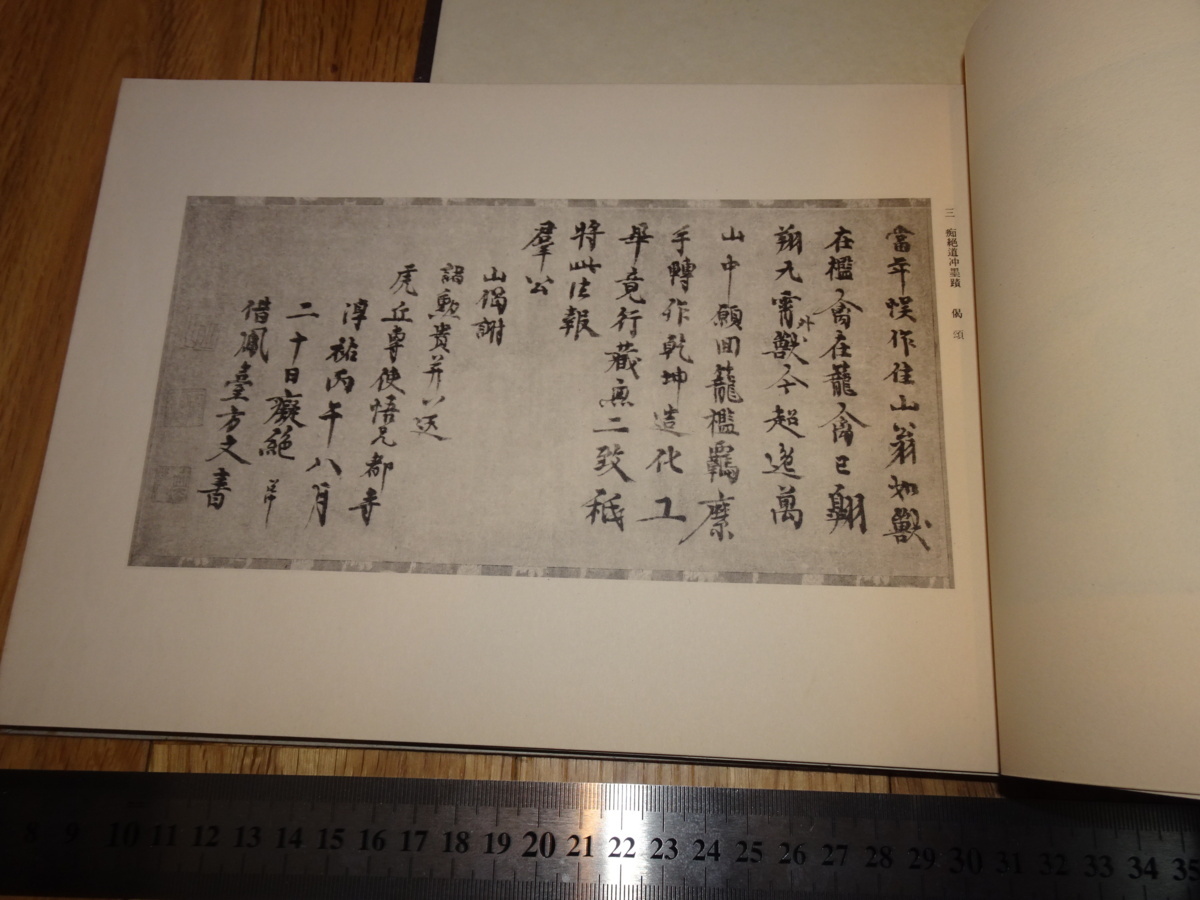 三 痴絶道冲墨蹟 偈頌
當年悞作住山翁如獸
在檻禽在籠禽已翔
翔九霄外獸今超逸萬
山中願回籠檻羈縻
手轉作乾坤造化工
畢竟行藏無二致秖
將此法報
羣公
山偈謝
諸勲貴并以送
虎丘專使悟兄都寺
淳祐丙午八月
二十日癡絶道冲
借鳳臺方丈書
8 9 10 11 12 13 14 15 16 17 18 19 20 21 22 23 24 25 26 27 28 29 30 31 32 33 34 35